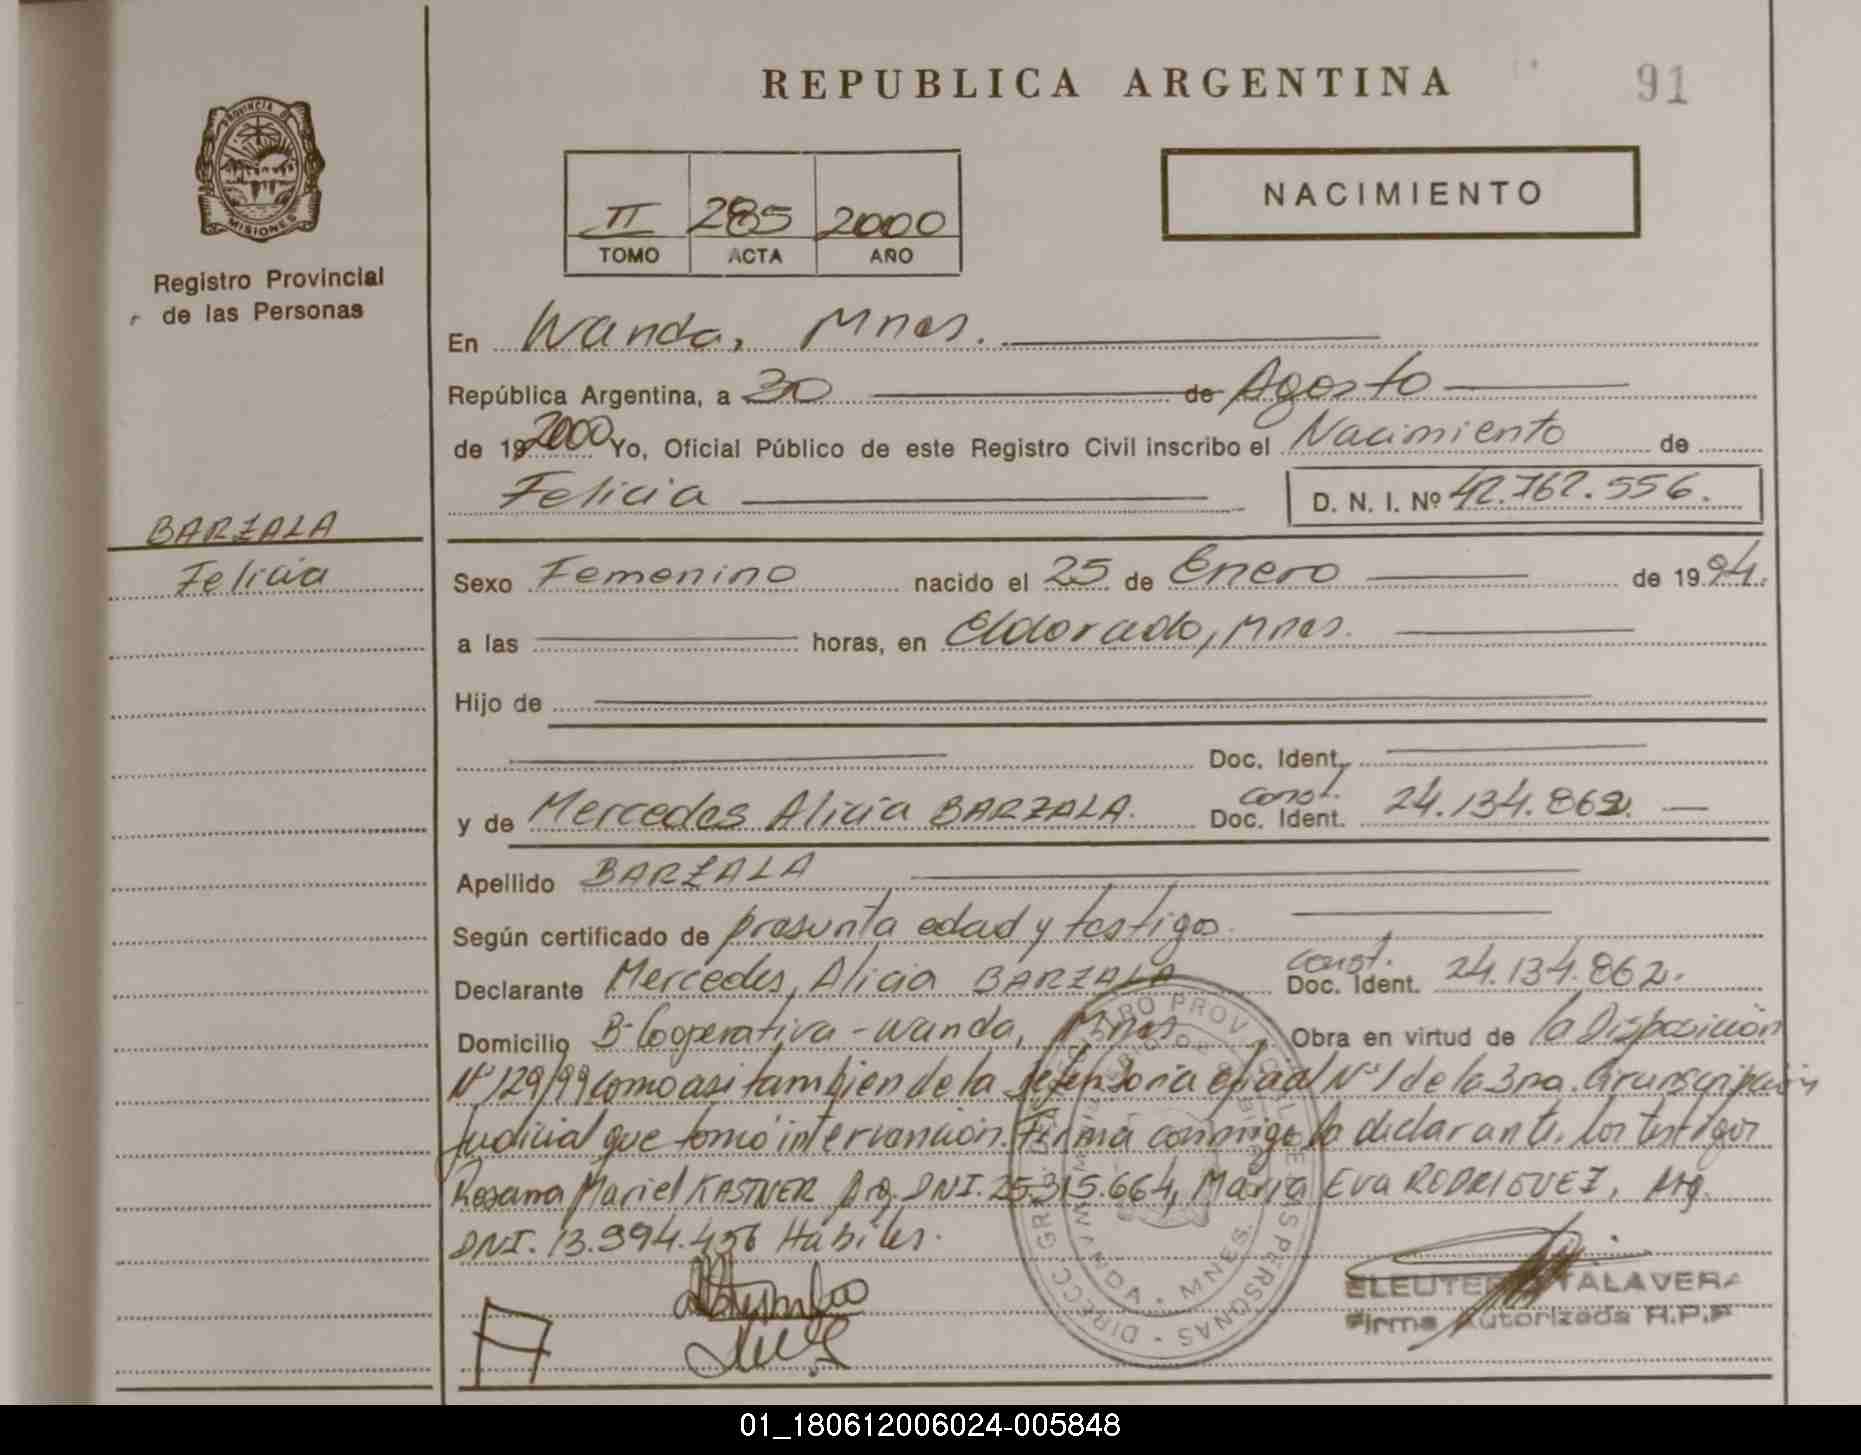 REPUBLICA ARGENTINA
91
PROVINCIA DE
MISIONES
Registro Provincial
de las Personas
NACIMIENTO
II 285 2000
TOMO ACTA AÑO
En Wanda, Mnes.
República Argentina, a 30 de Agosto
de 19 2000 Yo, Oficial Público de este Registro Civil inscribo el Nacimiento de
Felicia D. N. I. Nº 42.762.556.
BARZALA
Felicia
Sexo Femenino nacido el 25 de Enero de 1994.
a las horas, en Eldorado, Mnes.
Hijo de
Doc. Ident.
y de Mercedes Alicia BARZALA. Const. Doc. Ident. 24.134.862.
Apellido BARZALA
Según certificado de presunta edad y testigos.
Declarante Mercedes Alicia BARZALA Const. Doc. Ident. 24.134.862.
Domicilio Bº Cooperativa - Wanda, Mnes. Obra en virtud de la Disposición
Nº 129/99 como asi tambien de la defensoria oficial Nº 1 de la 3ra. Circunscripción
Judicial que tomó intervención. Firma conmigo la declarante, los testigos
Rosana Mariel KASTNER Arg. DNI. 25.315.664, María Eva RODRIGUEZ, Arg.
DNI. 13.994.456 Hábiles.
DIRECC. GRAL. DEL REGISTRO PROVINCIAL DE LAS PERSONAS
WANDA - MNES.
TALAVERA
Firma Autorizada R.P.P
01_180612006024-005848